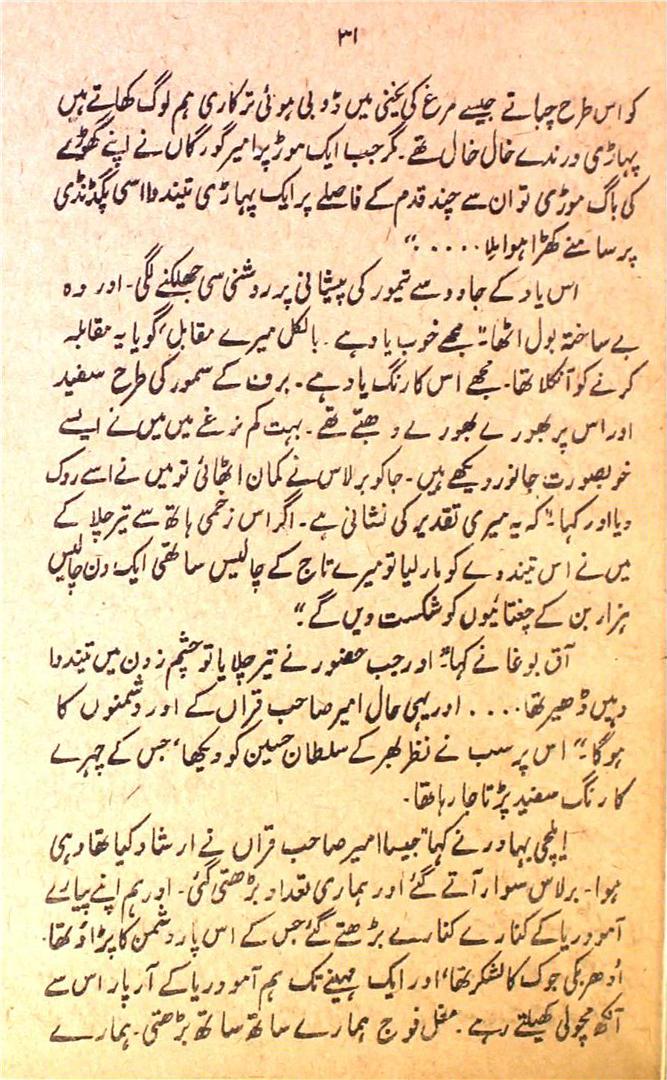 ۳۱
کو اس طرح چباتے جیسے مرغ کی یخنی میں ڈوبی ہوئی ترکاری ہم لوگ کھاتے ہیں
پہاڑی درندے خال خال تھے۔ مگر جب ایک موڑ پر امیر گورگاں نے اپنے گھوڑے
کی باگ موڑی تو ان سے چند قدم کے فاصلے پر ایک پہاڑی تیندوا اسی پگڈنڈی
پر سامنے کھڑا ہوا ملا . . . . . "
اس یاد کے جادو سے تیمور کی پیشانی پر روشنی سی جھلکنے لگی۔ اور وہ
بے ساختہ بول اٹھا: "مجھے خوب یاد ہے۔ بالکل میرے مقابل، گویا یہ مقابلہ
کرنے کو آنکلا تھا۔ مجھے اس کا رنگ یاد ہے۔ برف کے سمور کی طرح سفید
اور اس پر بھورے بھورے دھبّے تھے۔ بہت کم نرغے میں میں نے ایسے
خوبصورت جانور دیکھے ہیں۔ جاکو برلاس نے کمان اٹھائی تو میں نے اسے روک
دیا اور کہا: "کہ یہ میری تقدیر کی نشانی ہے۔ اگر اس زخمی ہاتھ سے تیر چلا کے
میں نے اس تیندوے کو مار لیا تو میرے تاج کے چالیس ساتھی ایک دن چالیس
ہزار بن کے چغتائیوں کو شکست دیں گے۔"
آق بوغا نے کہا: "اور جب حضور نے تیر چلایا تو چشم زدن میں تیندوا
وہیں ڈھیر تھا . . . . اور یہی حال امیر صاحب قراں کے اور دشمنوں کا
ہوگا۔" اس پر سب نے نظر بھر کے سلطان حسین کو دیکھا، جس کے چہرے
کا رنگ سفید پڑتا جا رہا تھا۔
ایلچی بہادر نے کہا "جیسا امیر صاحب قراں نے ارشاد کیا تھا وہی
ہوا۔ برلاس سوار آتے گئے اور ہماری تعداد بڑھتی گئی۔ اور ہم اپنے پیارے
آمو دریا کے کنارے کنارے بڑھتے گئے جس کے اس پار دشمن کا پڑاؤ تھا۔
اُدھر بکی جوک کا لشکر تھا، اور ایک مہینے تک ہم آمو دریا کے آر پار اس سے
آنکھ مچولی کھیلتے رہے۔ مغل فوج ہمارے ساتھ ساتھ بڑھتی۔ ہمارے